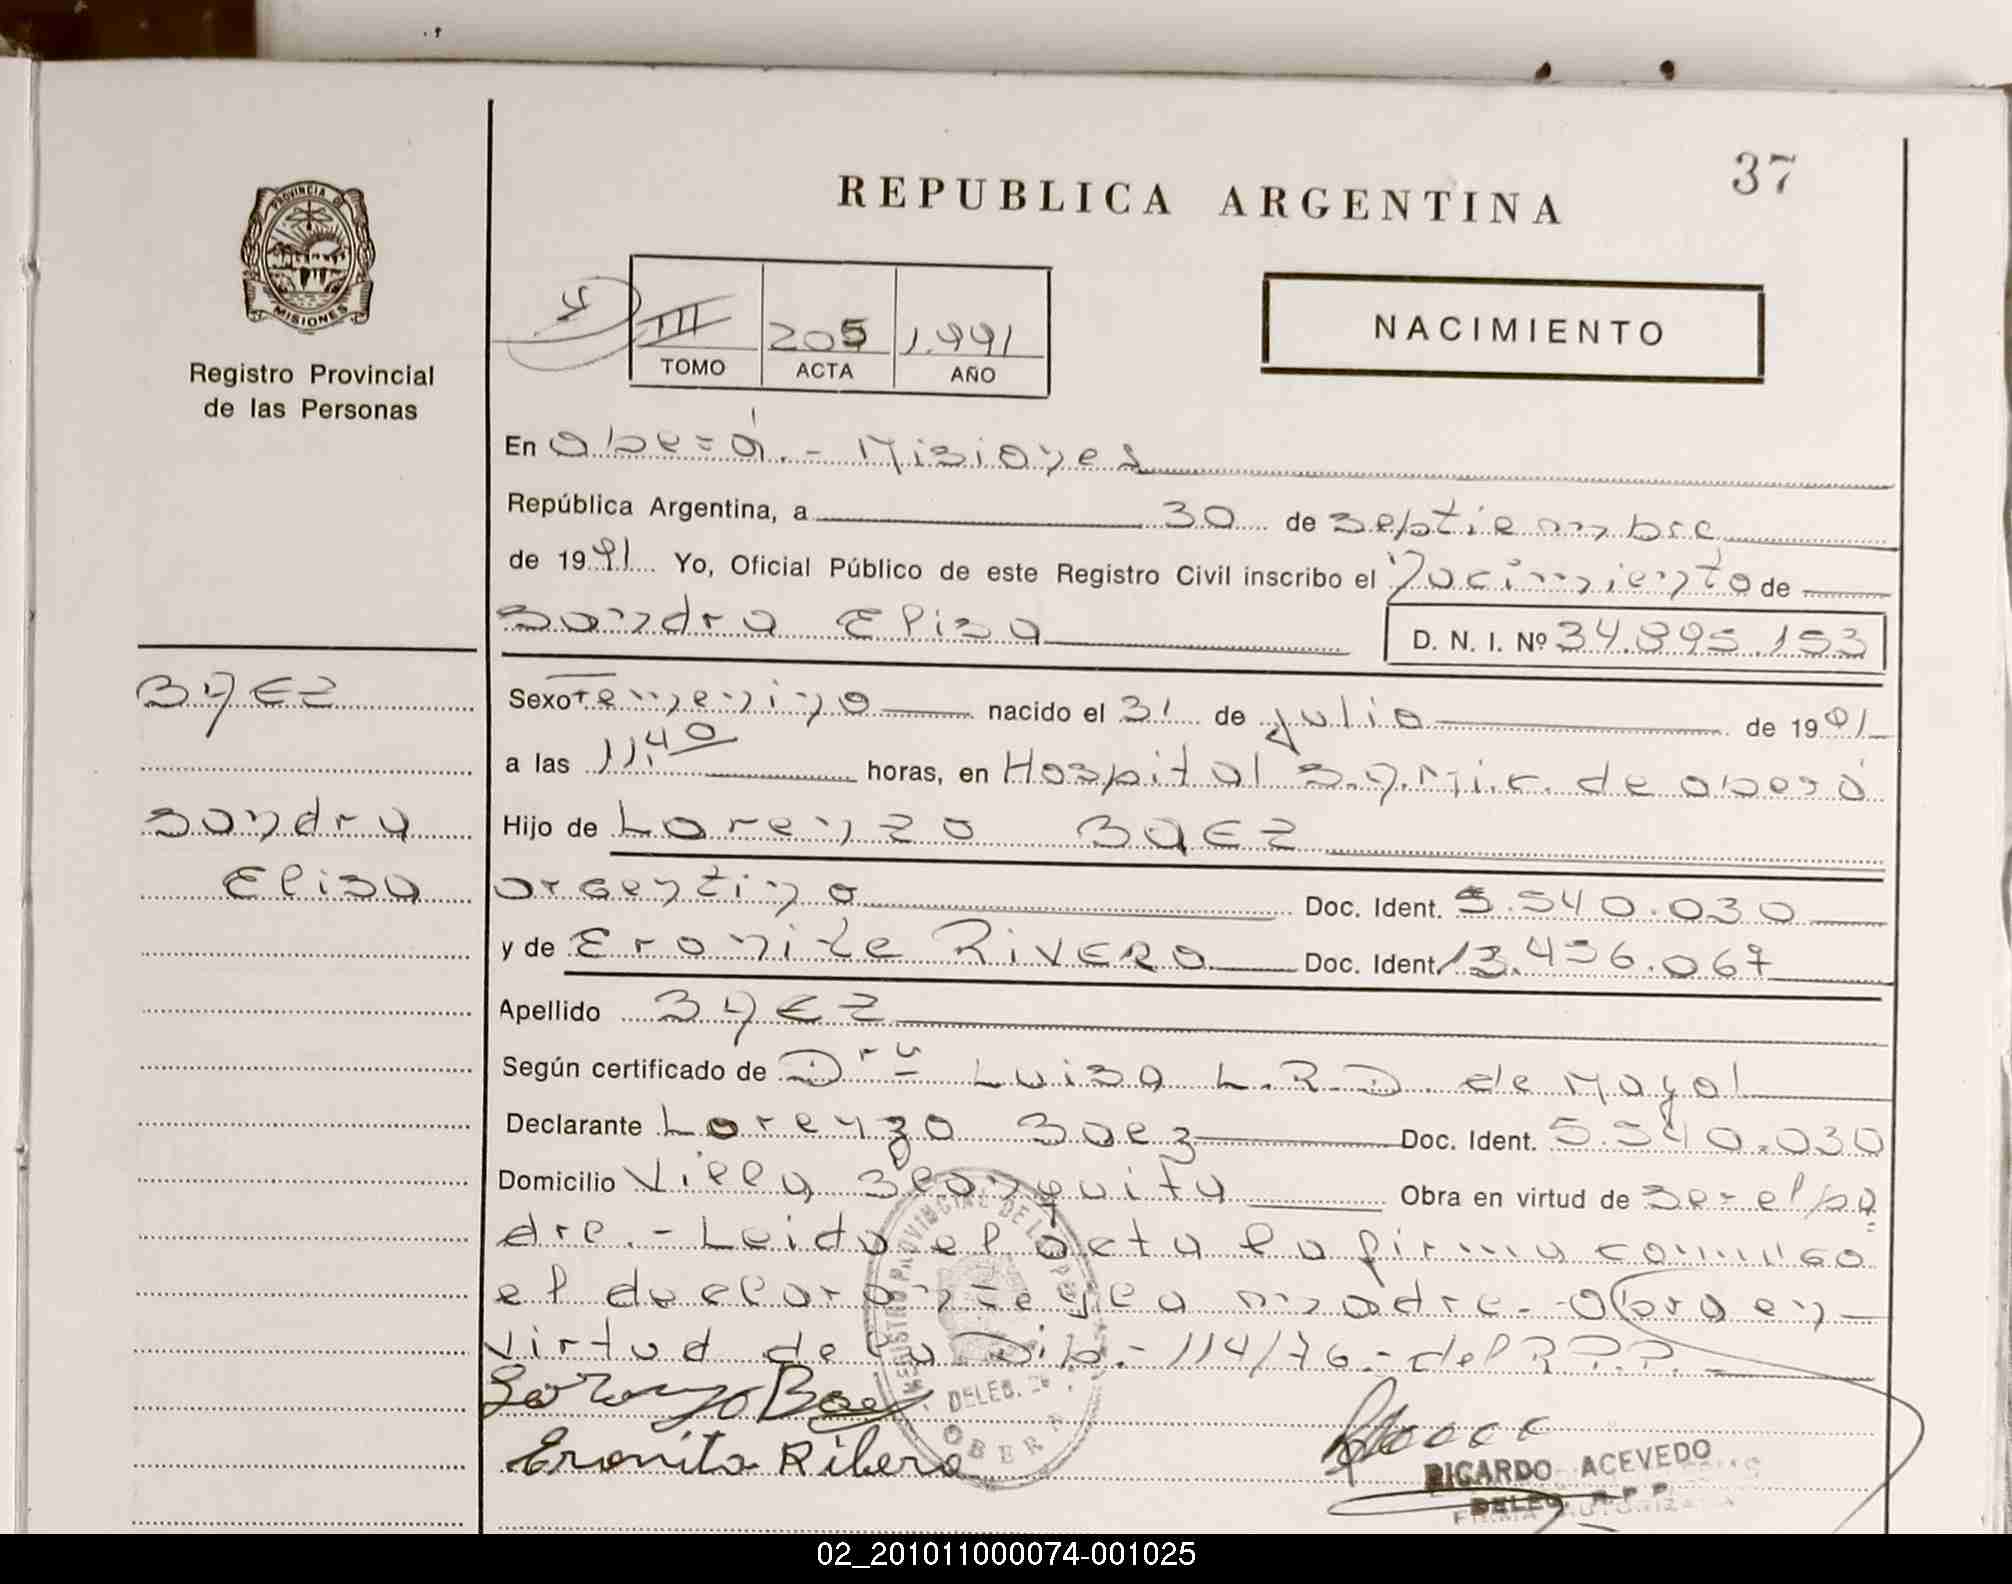 37
REPUBLICA ARGENTINA
PROVINCIA DE
MISIONES
Registro Provincial
de las Personas
III 205 1.991
TOMO ACTA AÑO
NACIMIENTO
En Oberá.- Misiones
República Argentina, a 30 de septiembre
de 1991 Yo, Oficial Público de este Registro Civil inscribo el Nacimiento de
Sandra Elisa D. N. I. Nº 34.895.153
BAEZ
Sandra
Elisa
Sexo Femenino nacido el 31 de julio de 1991
a las 11.40 horas, en Hospital de Oberá
Hijo de Lorenzo BAEZ
argentino Doc. Ident. 5.540.030
y de Eronita RIVERO Doc. Ident. 13.456.067
Apellido BAEZ
Según certificado de Dra Luisa L.R.D. de Mayol
Declarante Lorenzo Baez Doc. Ident. 5.540.030
Domicilio Villa Blanquita Obra en virtud de Ser el pa
dre.- Leida el acta la firma conmigo
el declarante y la madre.- Obra en
virtud de la Disp.- 114/76.- del R.P.P.
Lorenzo Baez
Eronita Ribero
REGISTRO PROVINCIAL DE LAS PER
DELEG.
OBERA
RICARDO ACEVEDO
DELEG. R P P
FIRMA AUTORIZADA
02_201011000074-001025